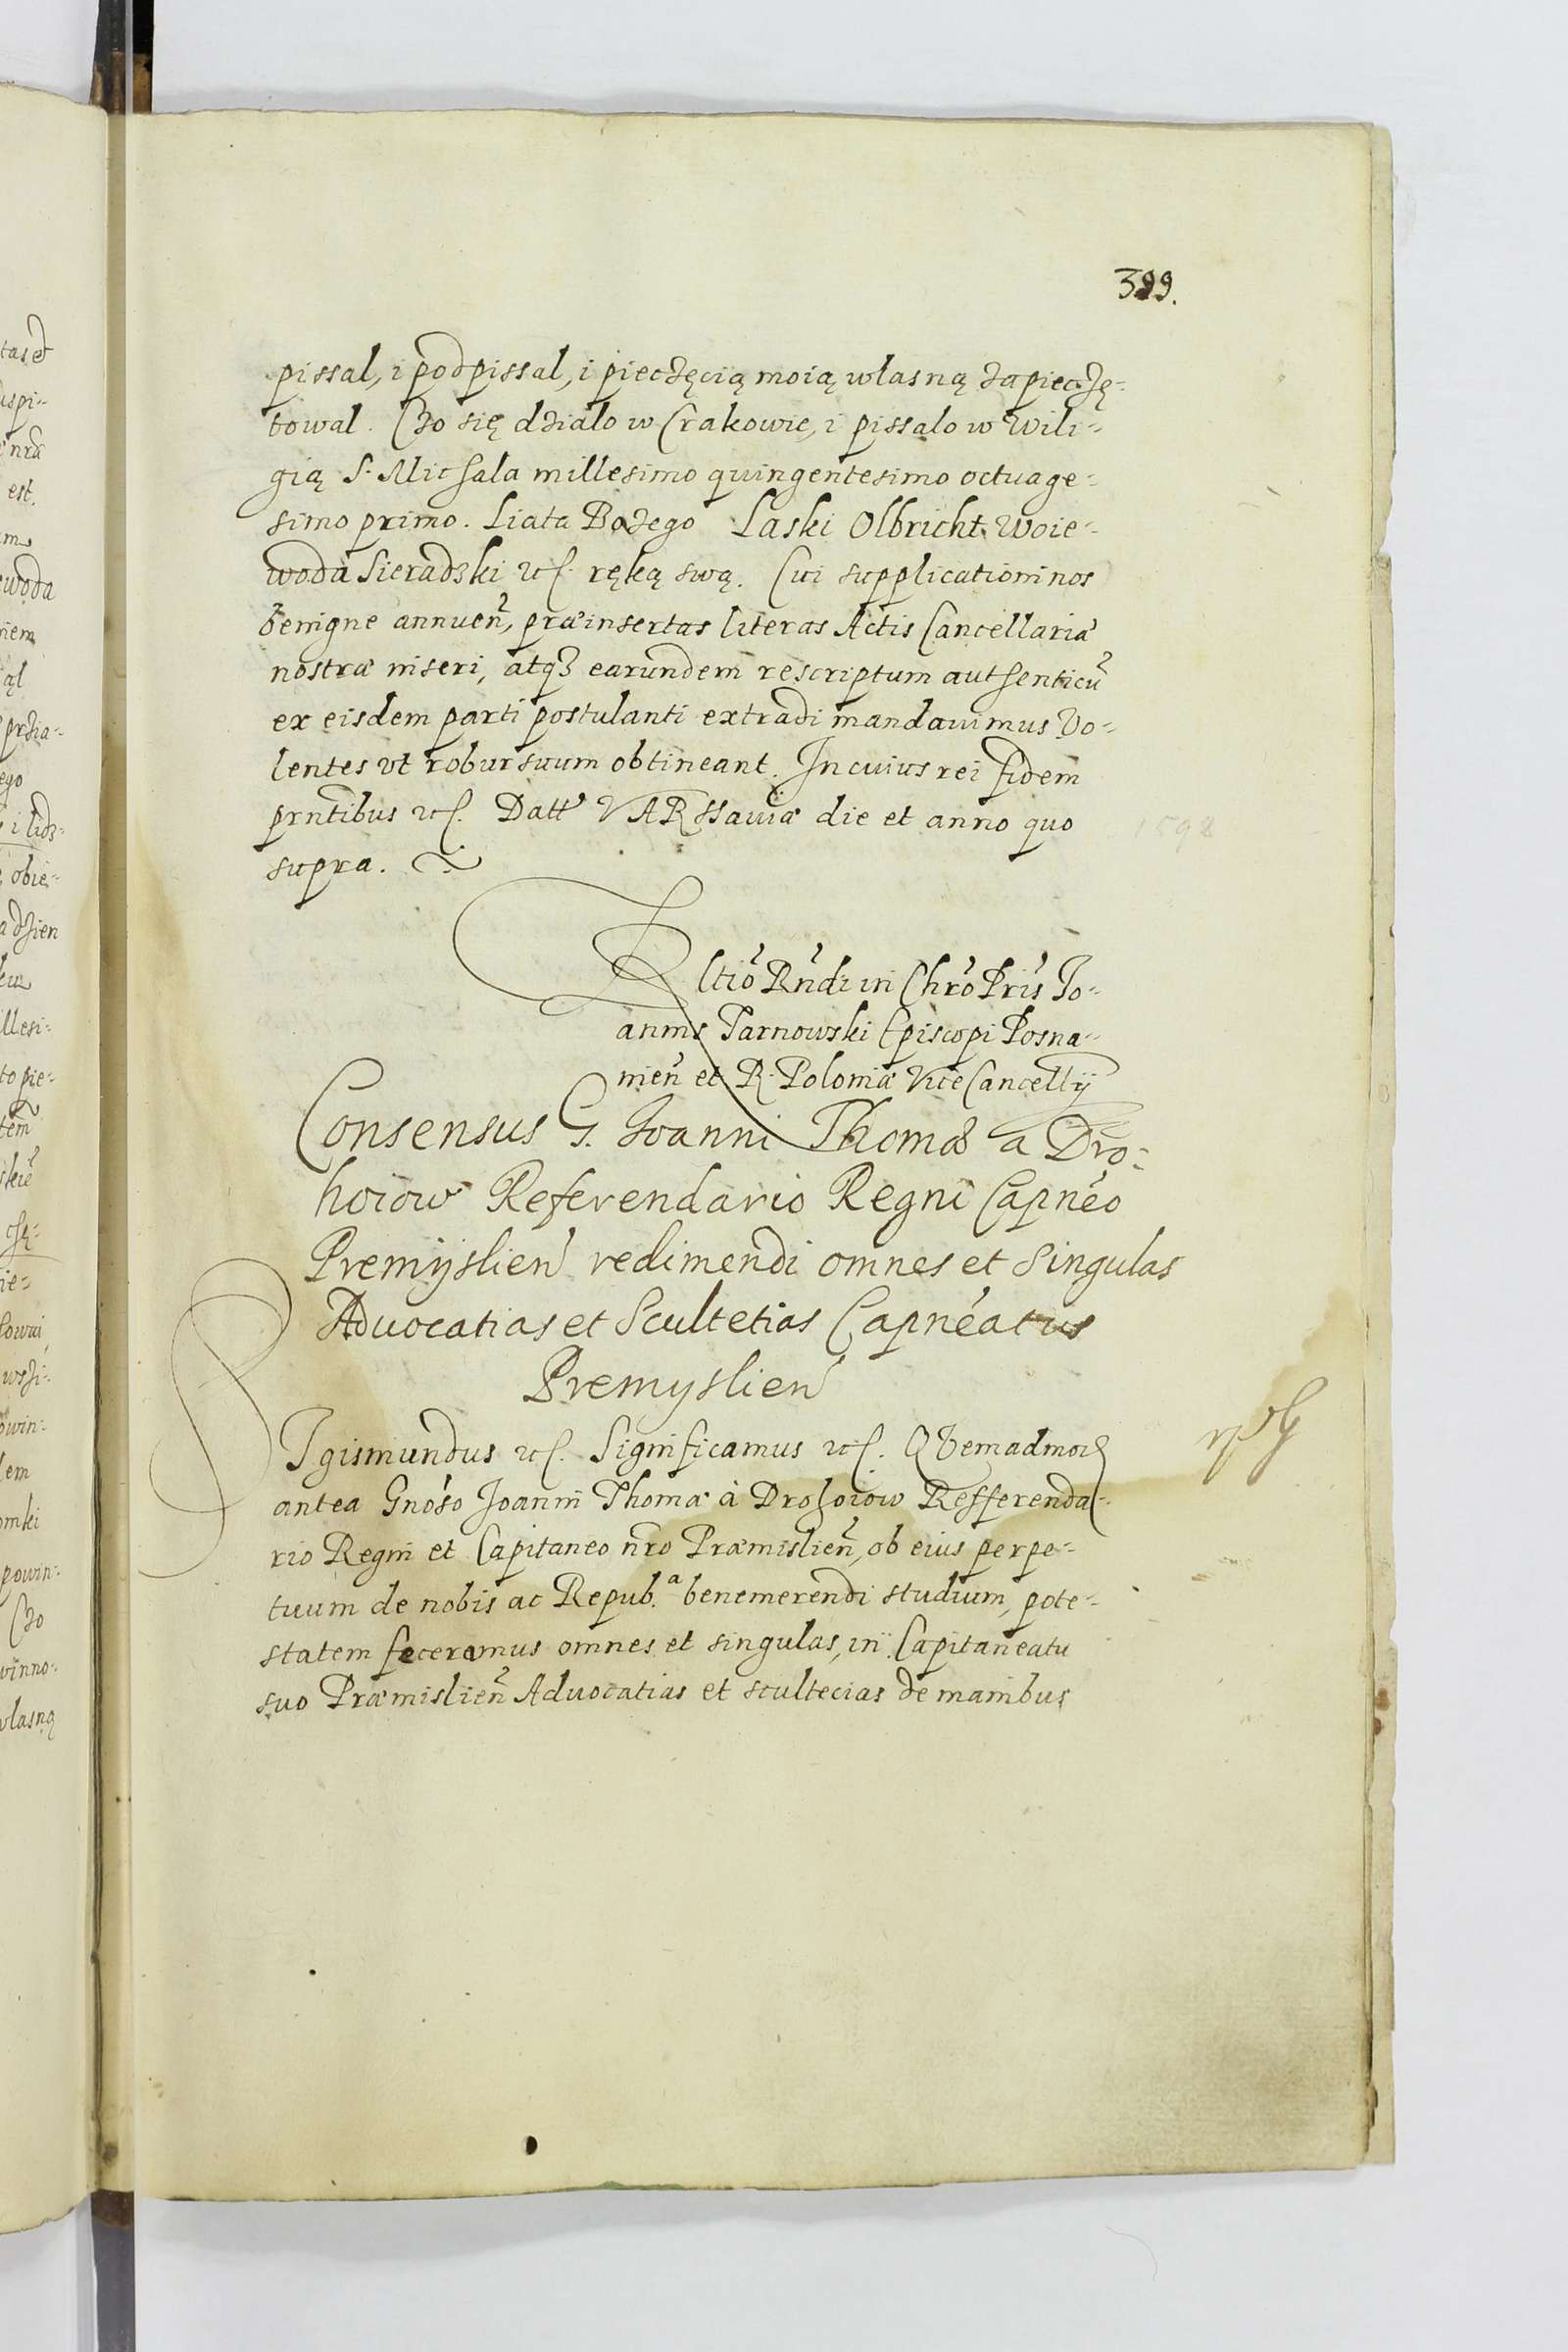 399.
pissal, i podpissal, i pieczęcią moią wlasną zapieczę-
towal. Czo się dzialo w Crakowie, i pissalo w Wili-
gią S. Michala millesimo quingentesimo octuage-
simo primo. Liata Bożego Laski Olbricht Woie-
woda Sieradzki etc. ręką swą. Cui supplicationi nos
benigne annuen̄, præinsertas literas Actis Cancellariæ
nostræ inseri, atq3 earundem rescriptum authenticū
ex eisdem parti postulanti extradi mandauimus Vo-
lentes vt robur suum obtineant. In cuius rei fidem
prntibus etc. Datt VARssauiæ die et anno quo
supra.
1598
Rltio Rndi in Chro Pris Jo-
annis Tarnowski Episcopi Posna-
nien et R. Poloniæ Vice Cancellij
Consensus G. Joanni Thomæ a Dro-
hoiow Referendario Regni Capneo
Premijslien redimendi omnes et singulas
Aduocatias et Scultetias Capneatus
Premyslien
SIgismundus etc. Significamus etc. Qvemadmod
antea Gnoso Joanni Thomæ à Drohoiow Refferenda-
rio Regni et Capitaneo nro Præmislien, ob eius perpe-
tuum de nobis ac Repub.a benemerendi studium, pote-
statem feceramus omnes et singulas, in Capitaneatu
suo Præmislien Aduocatias et scultecias de manibus
tas et
nra
est.
woda
niem
ął
prźia-
ego
i lidz-
obie-
llesi-
to pie-
tem
skie
ie-
wszi-
owin-
lem
omki
powin-
Czo
winno-
wlasną